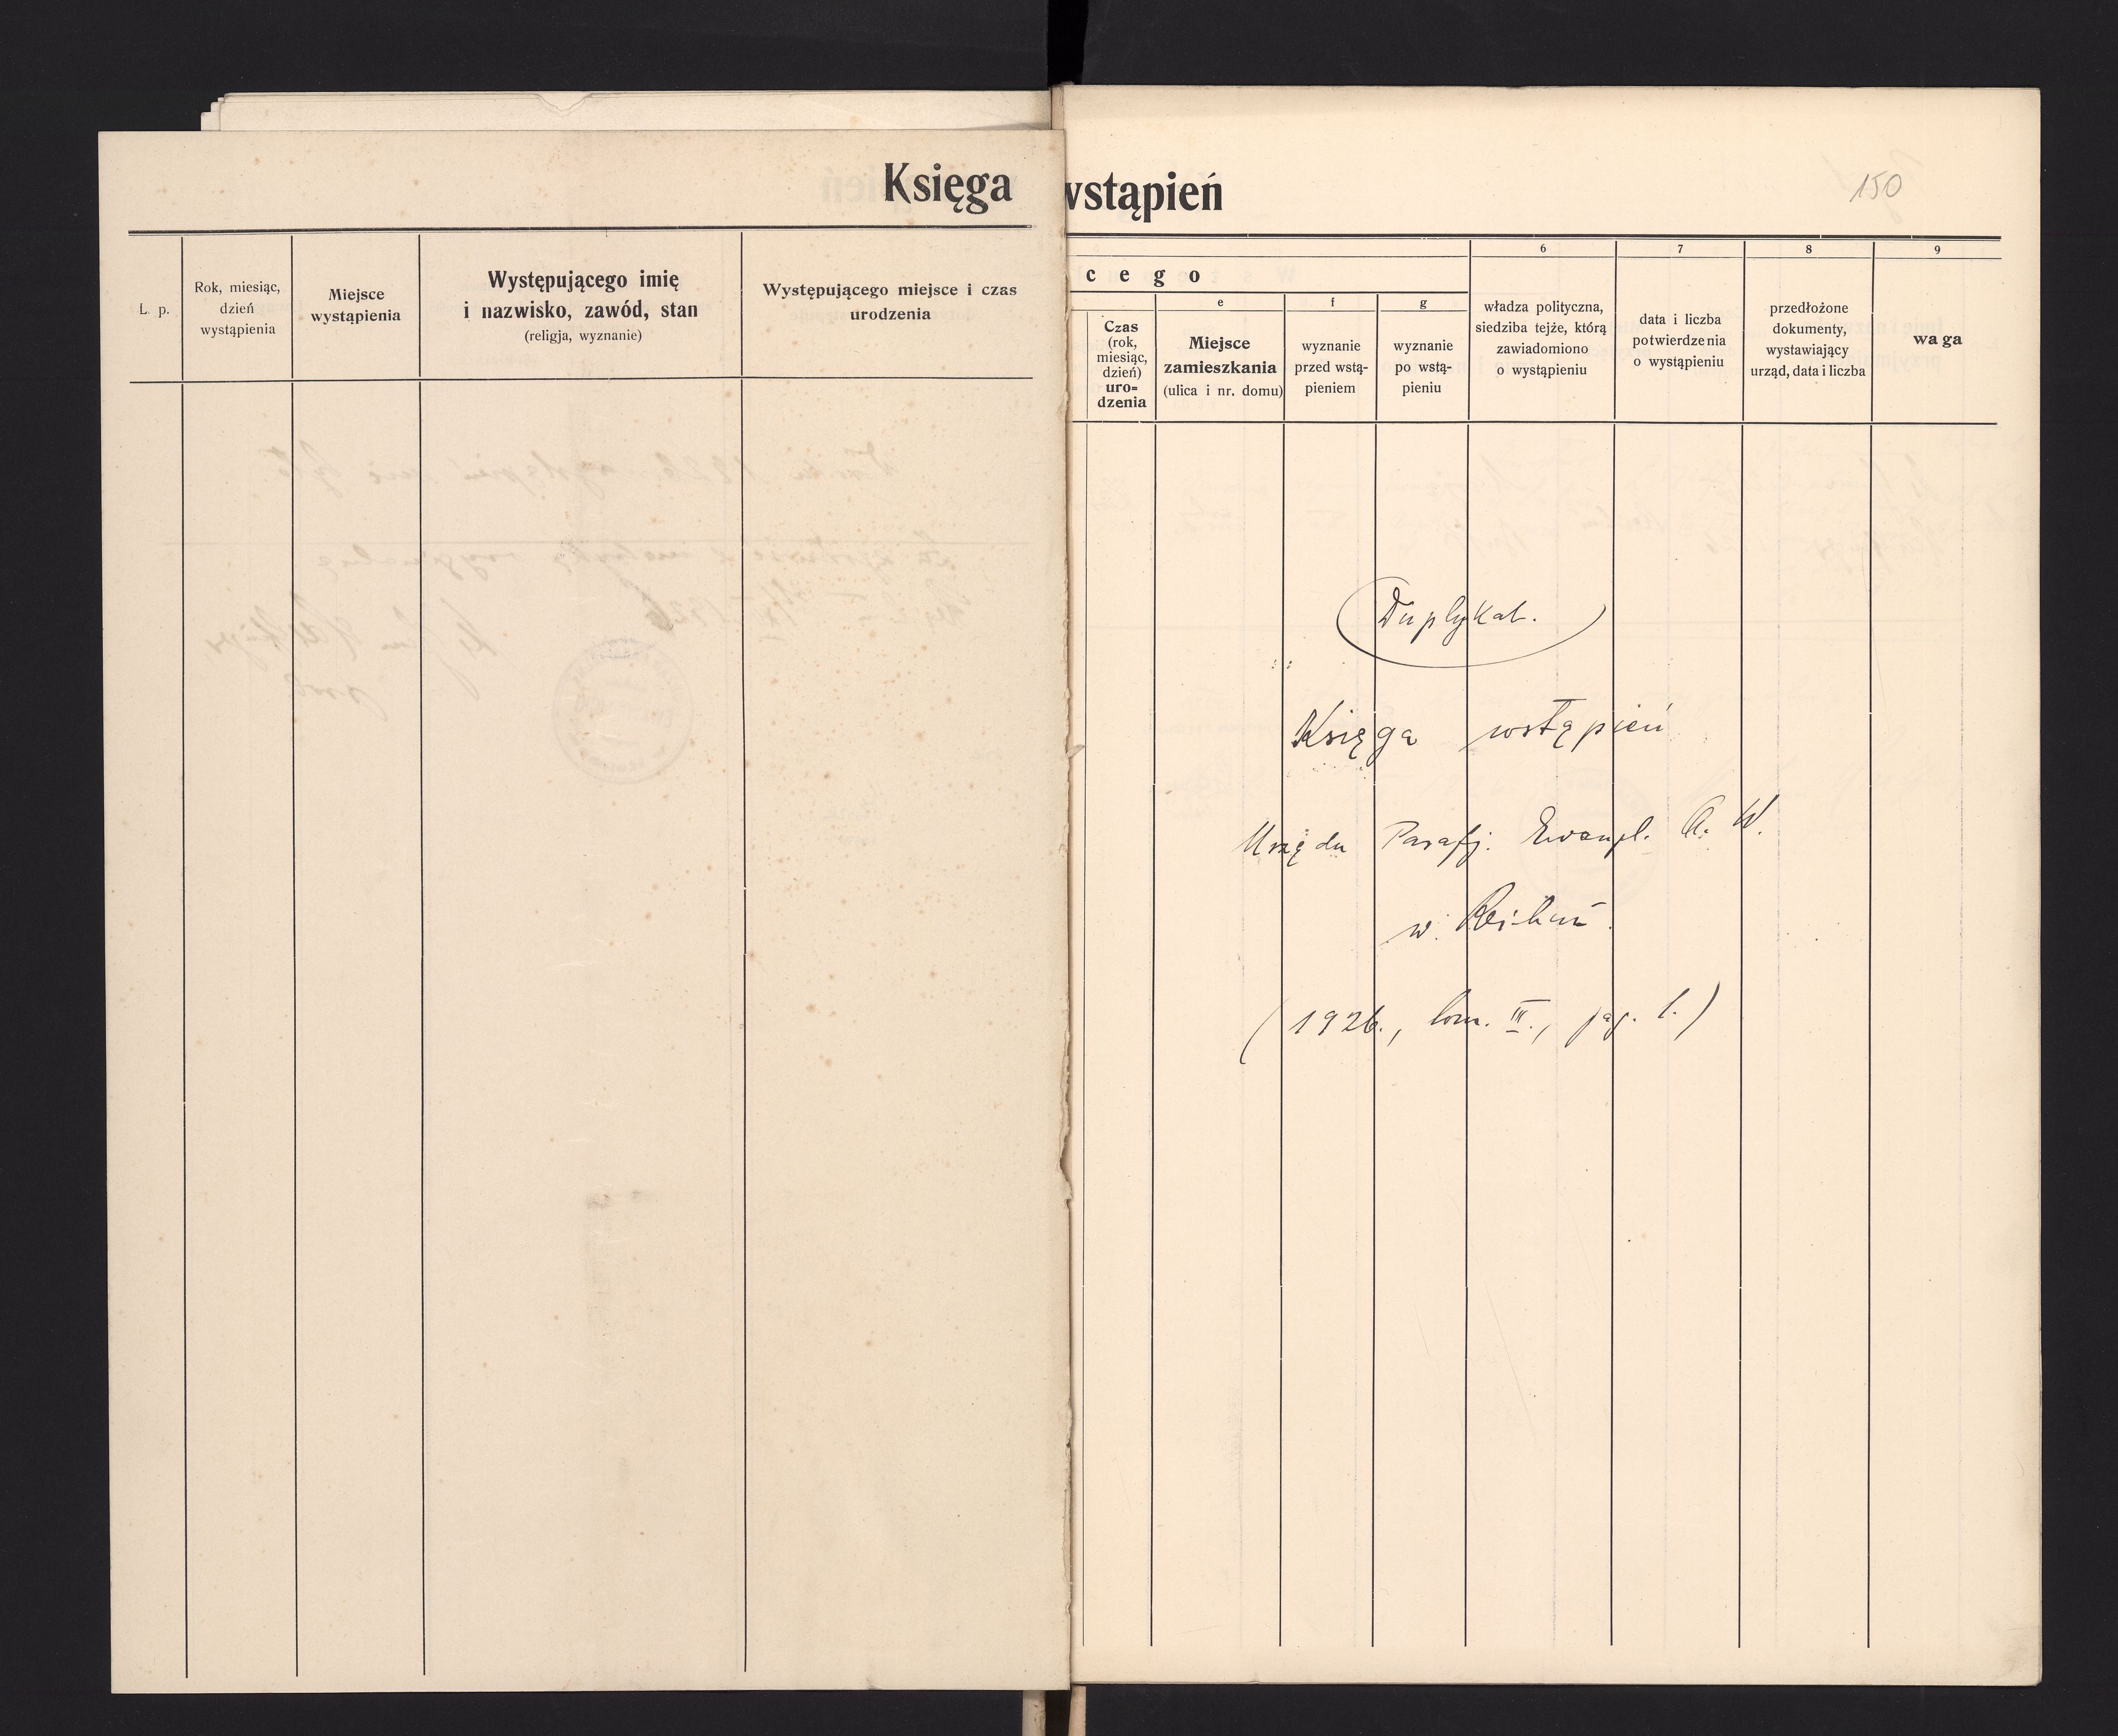 Księga
L. p.
Rok, miesiąc,
dzień
wystąpienia
Miejsce
wystąpienia
Występującego imię
i nazwisko, zawód, stan
(religja, wyznanie)
Występującego miejsce i czas
urodzenia
wstąpień
150
6 7 8 9
c e g o
e f g
Czas
(rok,
miesiąc,
dzień)
uro=
dzenia
Miejsce
zamieszkania
(ulica i nr. domu)
wyznanie
przed wstą-
pieniem
wyznanie
po wstą-
pieniu
władza polityczna,
siedziba tejże, którą
zawiadomiono
o wystąpieniu
data i liczba
potwierdzenia
o wystąpieniu
przedłożone
dokumenty,
wystawiający
urząd, data i liczba
waga
Duplykat.
Księga wstąpień
Urzędu Parafj. Ewangl. A. W.
w
(1926., tom. III., pag. 1.)